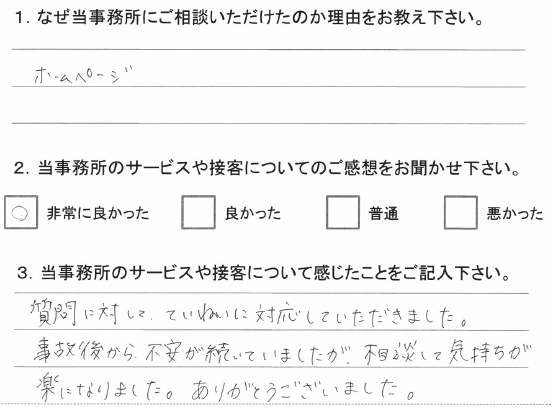 1. なぜ当事務所にご相談いただけたのか理由をお教え下さい。
ホームページ
2. 当事務所のサービスや接客についてのご感想をお聞かせ下さい。
○ 非常に良かった 良かった 普通 悪かった
3. 当事務所のサービスや接客について感じたことをご記入下さい。
質問に対して、ていねいに対応していただきました。
事故後から、不安が続いていましたが、相談して気持ちが
楽になりました。ありがとうございました。